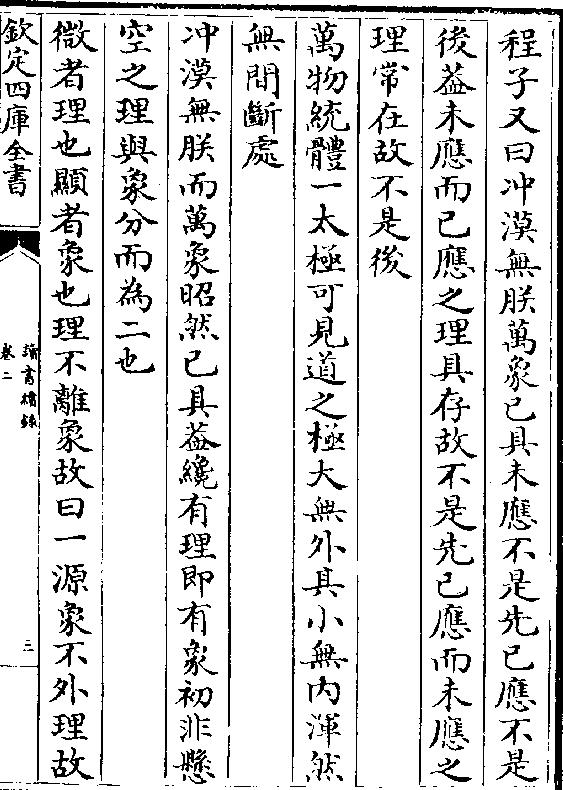 程子又曰冲漠無朕萬象已具未應不是先已應不是
後葢未應而已應之理具存故不是先已應而未應之
理常在故不是後
萬物統體一太極可見道之極大無外具小無内渾然
無間斷處
冲漠無朕而萬象昭然已具葢纔有理即有象初非懸
空之理與象分而為二也
微者理也顯者象也理不離象故曰一源象不外理故
欽定四庫全書
讀書續錄
卷二
三